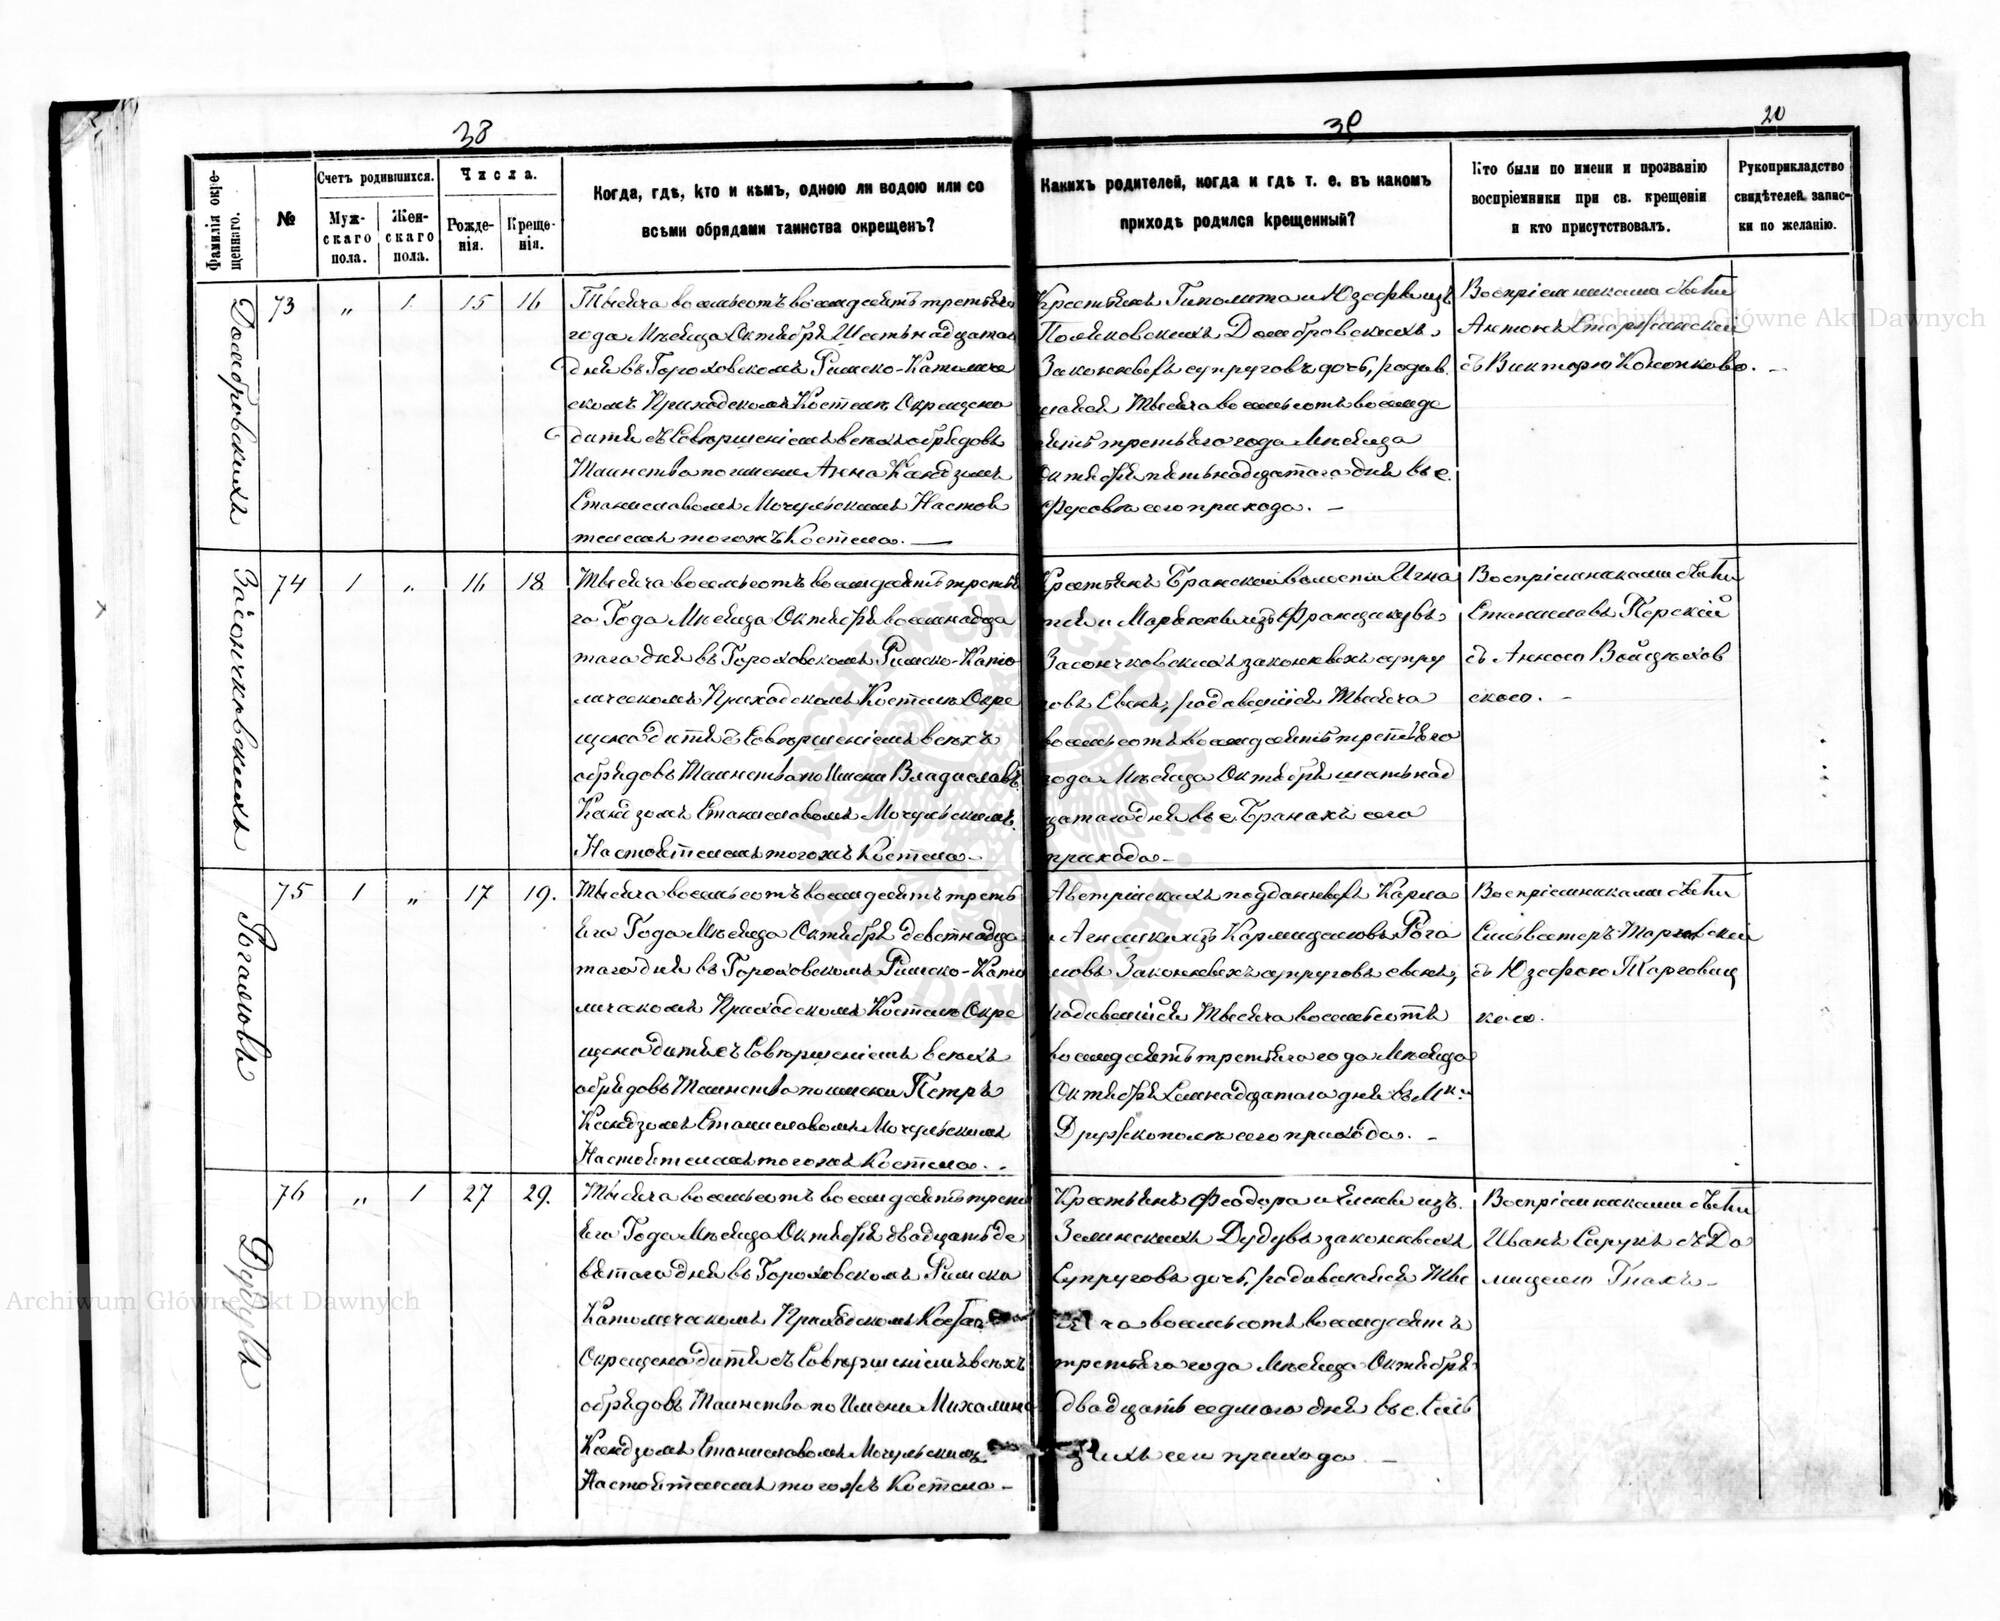 38
39
20
Фамилія окре-
щеннаго.
№
Счетъ родившихся.
Муж-
скаго
пола.
Жен-
скаго
пола.
Числа.
Рожде-
нія.
Креще-
нія.
Когда, гдѣ, кто и кѣмъ, одною ли водою или со
всѣми обрядами таинства окрещенъ?
Какихъ родителей, когда и гдѣ т. е. въ какомъ
приходѣ родился крещенный?
Кто были по имени и прозванію
воспріемники при св. крещеніи
и кто присутствовалъ.
Рукоприкладство
свидѣтелей запис-
ки по желанію.
Домбровскихъ
73 „ 1 15 16
Тысяча восемьсотъ восемдесятъ третьяго
года Мѣсяца Октября Шестьнадцатаго
дня въ Гороховскомъ Римско-Католиче
скомъ Приходскомъ Костелѣ Окрещено
дитя съ Совершеніемъ всехъ обрядовъ
Таинства по имени Анна Ксендзомъ
Станиславомъ Мочульскимъ Настоя
телемъ тогожъ Костела.
Крестьянъ Гиполита и Юзефы изъ
Поляковскихъ Домбровскихъ
Законныхъ супруговъ дочь, родив
шаяся Тысяча восемьсотъ восемде
сятъ третьяго года Мѣсяца
Октября пятьнадцатаго дня въ с.
сего прихода. —
Воспріемниками были
Антонъ
съ Викторіею
74 1 „ 16 18
Тысяча восемьсотъ восемдесятъ третья
го Года Мѣсяца Октября восемнадца
таго дня въ Гороховскомъ Римско-Като
лическомъ Приходскомъ Костелѣ Окре
щено дитя съ Совершеніемъ всехъ
обрядовъ Таинства по Имени Владиславъ
Ксендзомъ Станиславомъ Мочульскимъ
Настоятелемъ тогожъ Костела —
Крестьянъ Бранской волости Игна
тія и Маріанны изъ
законныхъ супру
говъ Сынъ, родившійся Тысяча
восемьсотъ восемдесятъ третьяго
года Мѣсяца Октября шестьнад
цатаго дня въ с. Бранахъ сего
прихода —
Воспріемниками были
Станиславъ Перскій
съ Анною Войцѣхов
скою. —
Рогалювъ
75 1 „ 17 19.
Тысяча восемьсотъ восемдесятъ треть
яго Года Мѣсяца Октября девятнадца
таго дня въ Гороховскомъ Римско-Като
лическомъ Приходскомъ Костелѣ Окре
щено дитя съ Совершеніемъ всехъ
обрядовъ Таинства по имени Петръ
Ксендзомъ Станиславомъ Мочульскимъ
Настоятелемъ тогожъ Костела.
Австрійскихъ подданныхъ Карла
и Агнешки изъ Рога
люовъ Законныхъ супруговъ сынъ,
родившійся Тысяча восемьсотъ
восемдесятъ третьяго года Мѣсяца
Октября Семнадцатаго дня въ М.
Дружкополѣ сего прихода. —
Воспріемниками были
Сильвестеръ
съ Юзефою
кою.
Дудувъ
76 „ 1 27 29.
Тысяча восемьсотъ восемдесятъ треть
яго Года Мѣсяца Октября двадцать де
вятаго дня въ Гороховскомъ Римско
Католическомъ Приходскомъ Костелѣ
Окрещено дитя съ Совершеніемъ всехъ
обрядовъ Таинства по Имени Михалина
Ксендзомъ Станиславомъ Мочульскимъ
Настоятелемъ тогожъ Костела —
Крестьянъ Феодора и Елены изъ
Зелинскихъ Дудувъ законныхъ
Супруговъ дочь, родившаяся Тыс
яча восемьсотъ восемдесятъ
третьяго года Мѣсяца Октября
двадцать седмаго дня въ с.
сего прихода —
Воспріемниками были
Иванъ Сарукъ съ До
мицелею Гнахъ —
Archiwum Główne Akt Dawnych
Archiwum Główne Akt Dawnych